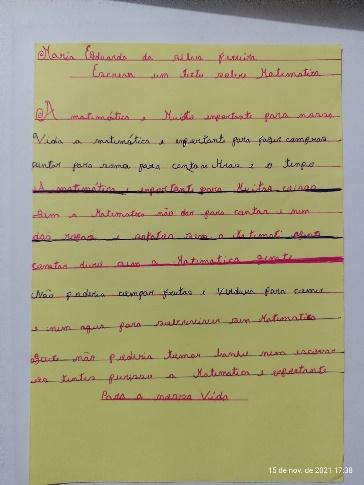 Maria Eduarda da silva pereira
Escreva um texto sobre Matemática
A matemática e Muito enportante para nossa
Vida a matemática e enportante para fazer compras
contar para soma para contar Hras e o tempo
A matemática e enportante para Muitas coisas
Sem a Matematica não dar para contar e nem
das ropas e sapatos sem a
contar diro sem a Matematica gente
Não poderia compar frutas e Verdura para comer
e nem agua para sobreviver sem Matematica
não poderia tomar banho nem escovar
os dentes purisso a Matematica e enportante
Para a nossa Vida
15 de nov. de 2021 17:38